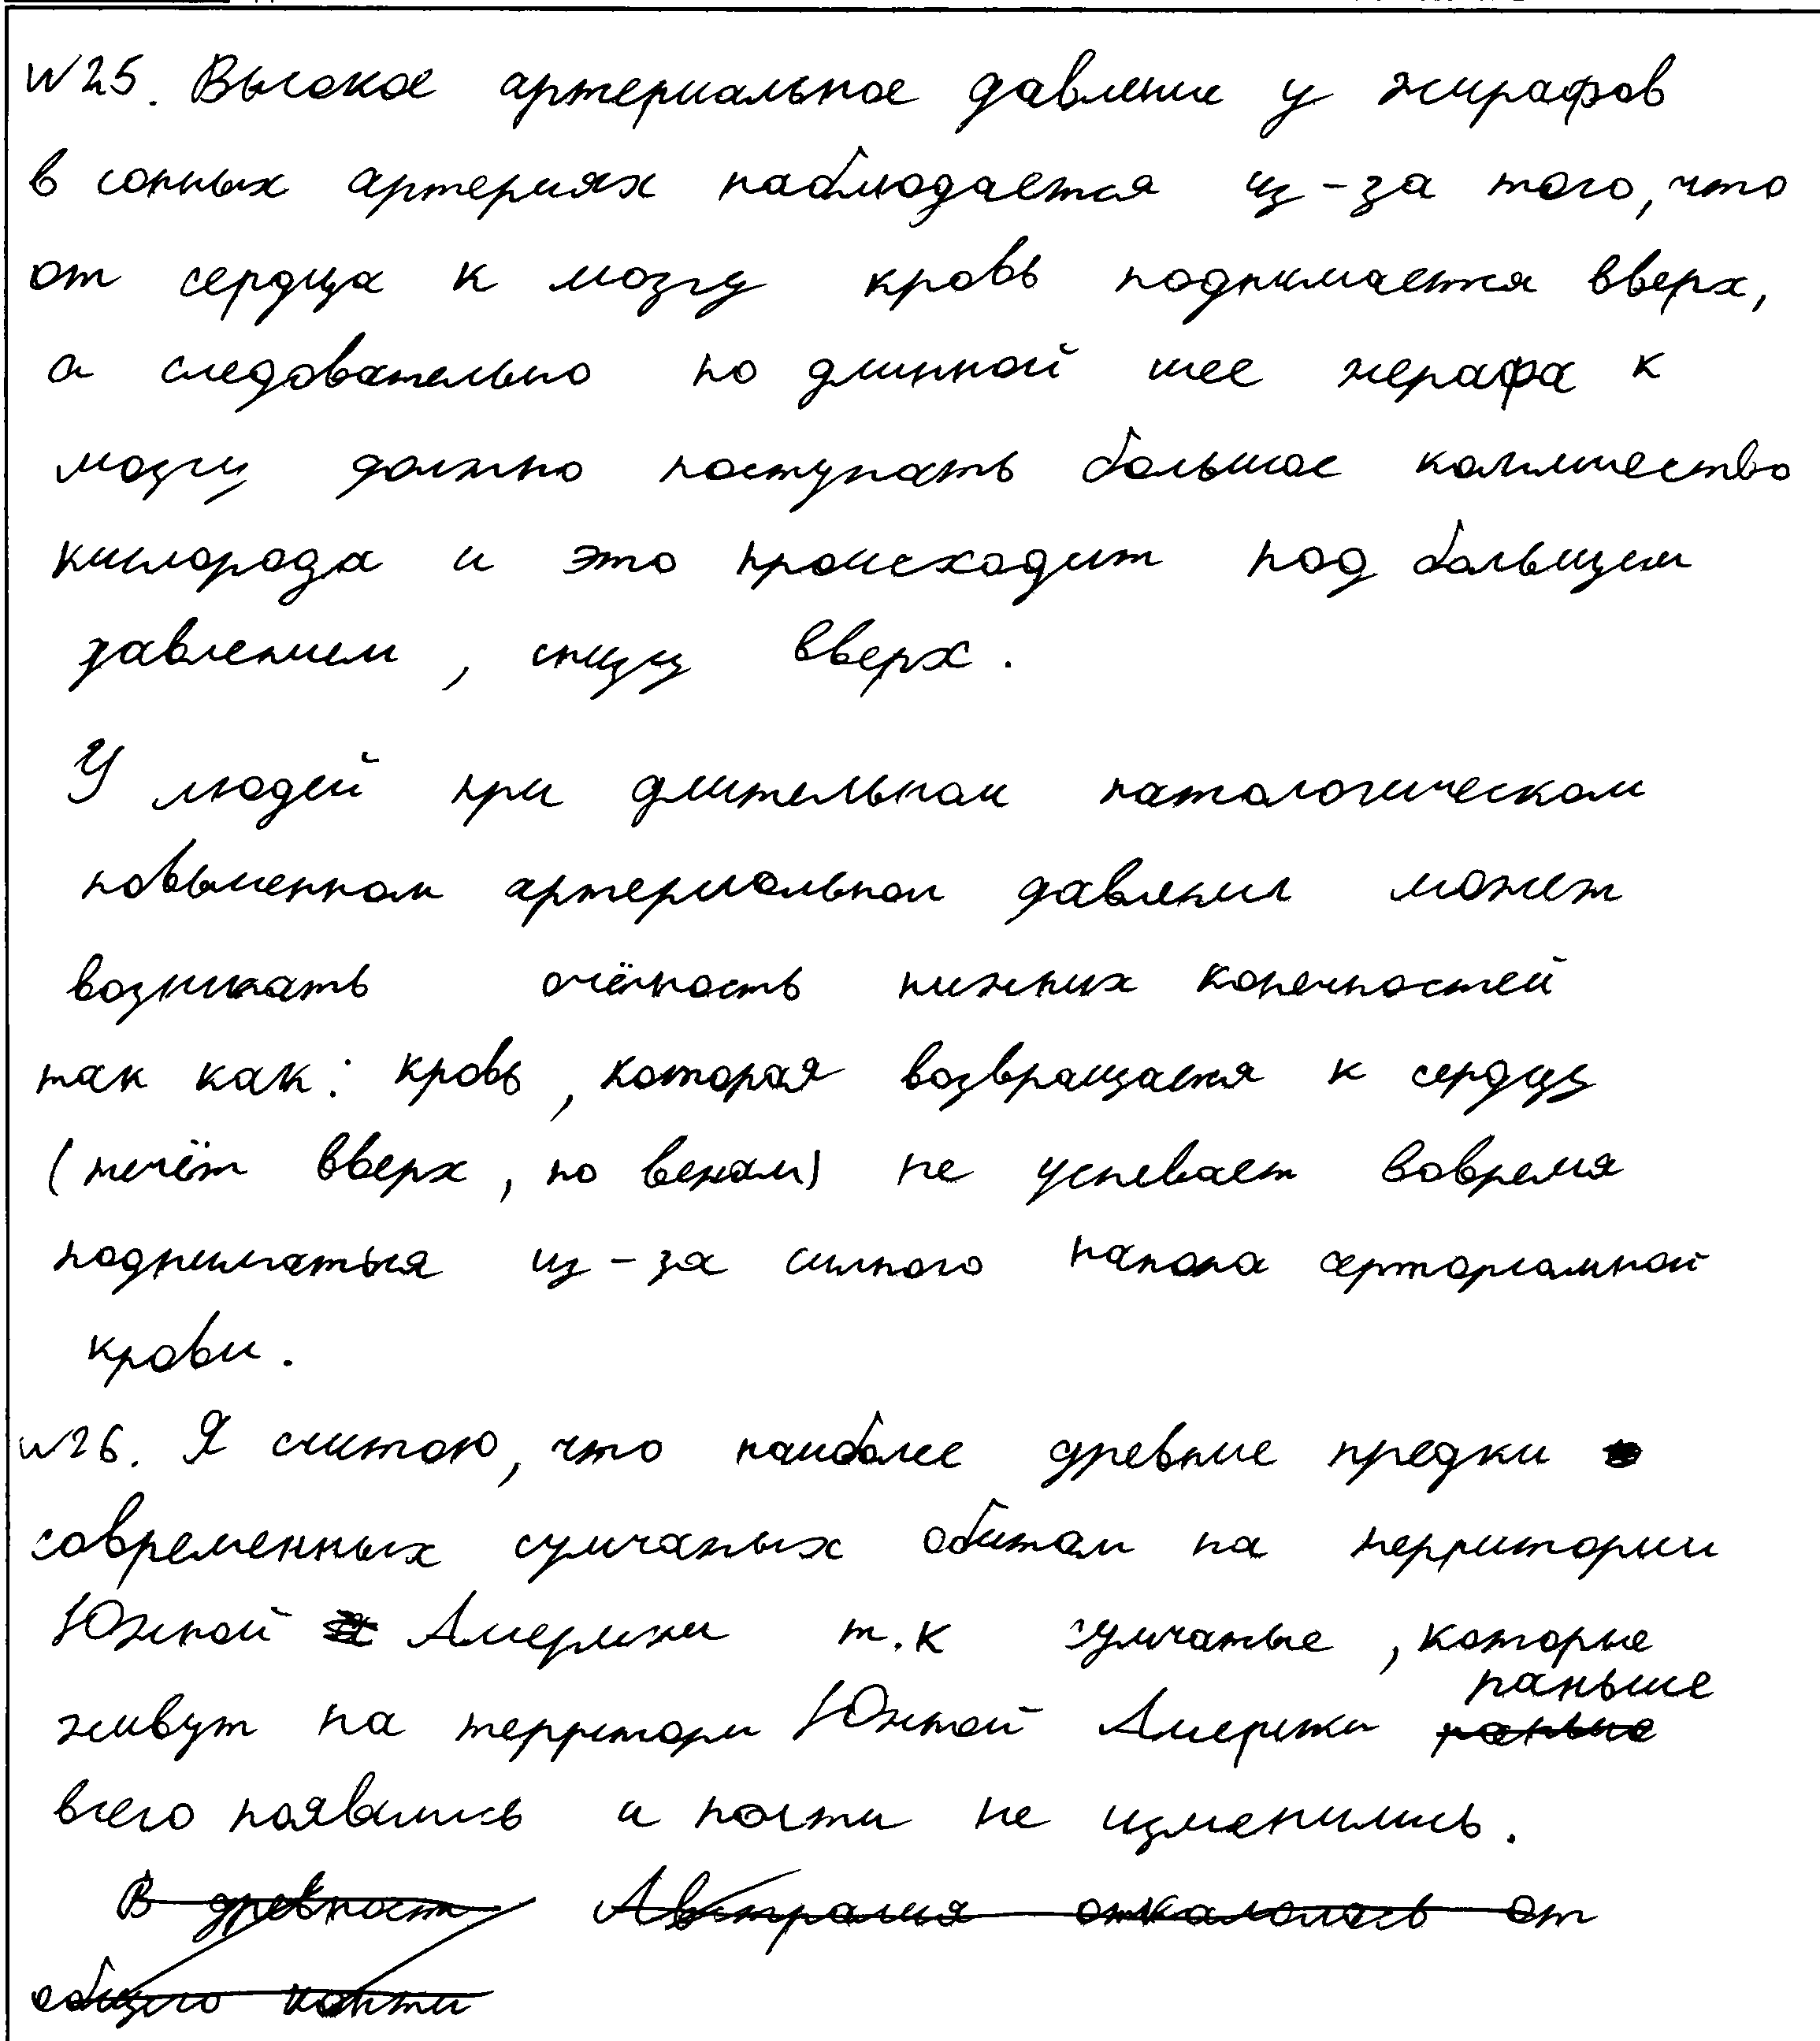 N25. Высокое артериальное давление у жирафов
в сонных артериях наблюдается из-за того, что
от сердца к мозгу кровь поднимается вверх,
а следовательно по длинной шее жерафа к
мозгу должно поступать большое колличество
кислорода и это происходит под большим
давлением, снизу вверх.
У людей при длительном патологическом
повышенном артериальном давлении может
возникать отёчность нижних конечностей
так как: кровь, которая возвращается к сердцу
(течёт вверх, по венам) не успевает вовремя
подниматься из-за сильного напора артериальной
крови.
N26. Я считаю, что наиболее древние предки
современных сумчатых обитали на территории
Южной Америки т.к сумчатые, которые
живут на территори Южной Америки раньше
всего появились и почти не изменились.
В древности Австралия откалолась от
общего конти